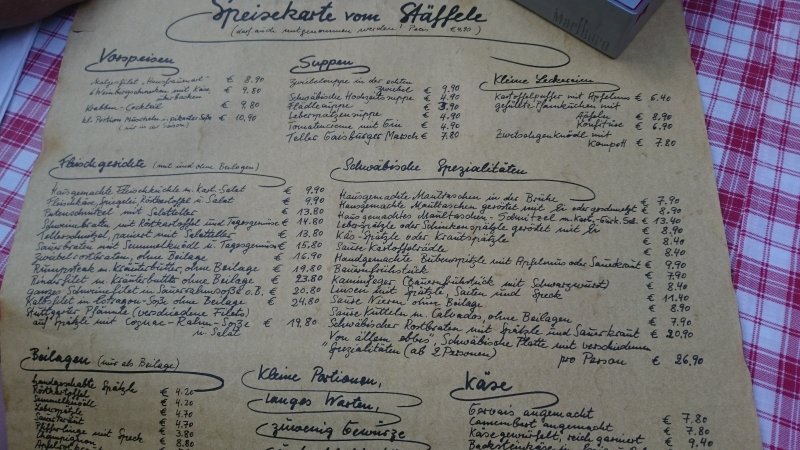 Speisekarte vom Stäffele
(darf auch mitgenommen werden! Preis €4,90)
Marlboro
Vorspeisen
€ 8.90
6 Weinbergschnecken mit Käse
überbacken € 9.80
Krabben-Cocktail € 9,80
kl. Portion Muscheln in pikanter Soße € 10,90
(nur in der Saison)
Suppen
Zwiebelsuppe in der echten
Zwiebel € 9.90
Schwäbische Hochzeitssuppe € 4.90
Flädlesuppe € 3.90
Leberspatzensuppe € 4.90
Tomatencreme mit Gin € 4.90
Teller Gaisburger Marsch € 7.80
Kleine Leckereien
Kartoffelpuffer mit Apfelmus € 6.40
gefüllte Pfannkuchen mit
Äpfeln € 8.90
Konfitüre € 6.90
Zwetschgenknödl mit
Kompott € 7.80
Fleischgerichte (mit und ohne Beilagen)
Hausgemachte Fleischküchle m. Kart. Salat € 9.90
Fleischkäse, Spiegelei, Röstkartoffel u. Salat € 9.90
Putenschnitzel mit Salatteller € 13.80
Schweinebraten mit Röstkartoffel und Tagesgemüse € 14.80
Tellerschnitzel, paniert mit Salatteller € 13.80
Sauerbraten mit Semmelknödl u. Tagesgemüse € 15.80
Zwiebelrostbraten, ohne Beilage € 16.90
Rumpsteak m. Kräuterbutter, ohne Beilage € 19.80
Rinderfilet m. Kräuterbutter ohne Beilage € 23.80
Ganzes Schweinefilet in Sauerrahmsoße o.B. € 20.80
Kalbsfilet in Estragon-Soße ohne Beilage € 24.80
Stuttgarter Pfännle (verschiedene Filets)
auf Spätzle mit Cognac-Rahm-Soße € 19,80
u. Salat
Schwäbische Spezialitäten
Hausgemachte Maultaschen in der Brühe € 7.90
Hausgemachte Maultaschen geröstet mit Ei oder geschmelzt € 8.90
Hausgemachtes Maultaschen-Schnitzel m. Kart.-Gurk. Sal. € 13.40
Leberspätzle oder Schinkenspätzle geröstet mit Ei € 8.90
Käs-Spätzle oder Krautspätzle € 8.40
Saure Kartoffelrädle € 8.40
Handgemachte Bubenspitzle mit Apfelmus oder Sauerkraut € 9.90
Bauernfrühstück € 7.90
Kaminfeger (Bauernfrühstück mit Schwarzwurst) € 8.40
Linsen mit Spätzle, Saiten und Speck € 11.40
Saure Nieren ohne Beilage € 8.90
Saure Kutteln m. Calvados, ohne Beilage € 7.90
Schwäbischer Rostbraten mit Spätzle und Sauerkraut € 20,90
"Von allem ebbes", Schwäbische Platte mit verschiedenen
Spezialitäten (ab 2 Personen)
pro Person € 26,90
Beilagen (nur als Beilage)
handgeschabte Spätzle € 4.20
Röstkartoffel € 4.20
Semmelknödl € 4.70
Leberspätzle € 4.70
Sauerkraut € 3.80
Pfifferlinge mit Speck € 8.80
Champignon
Kleine Portionen,
langes Warten,
zuwenig Gewürze
Käse
Gervais angemacht € 7.80
Camembert angemacht € 7.80
Käse gewürfelt, reich garniert € 9.40